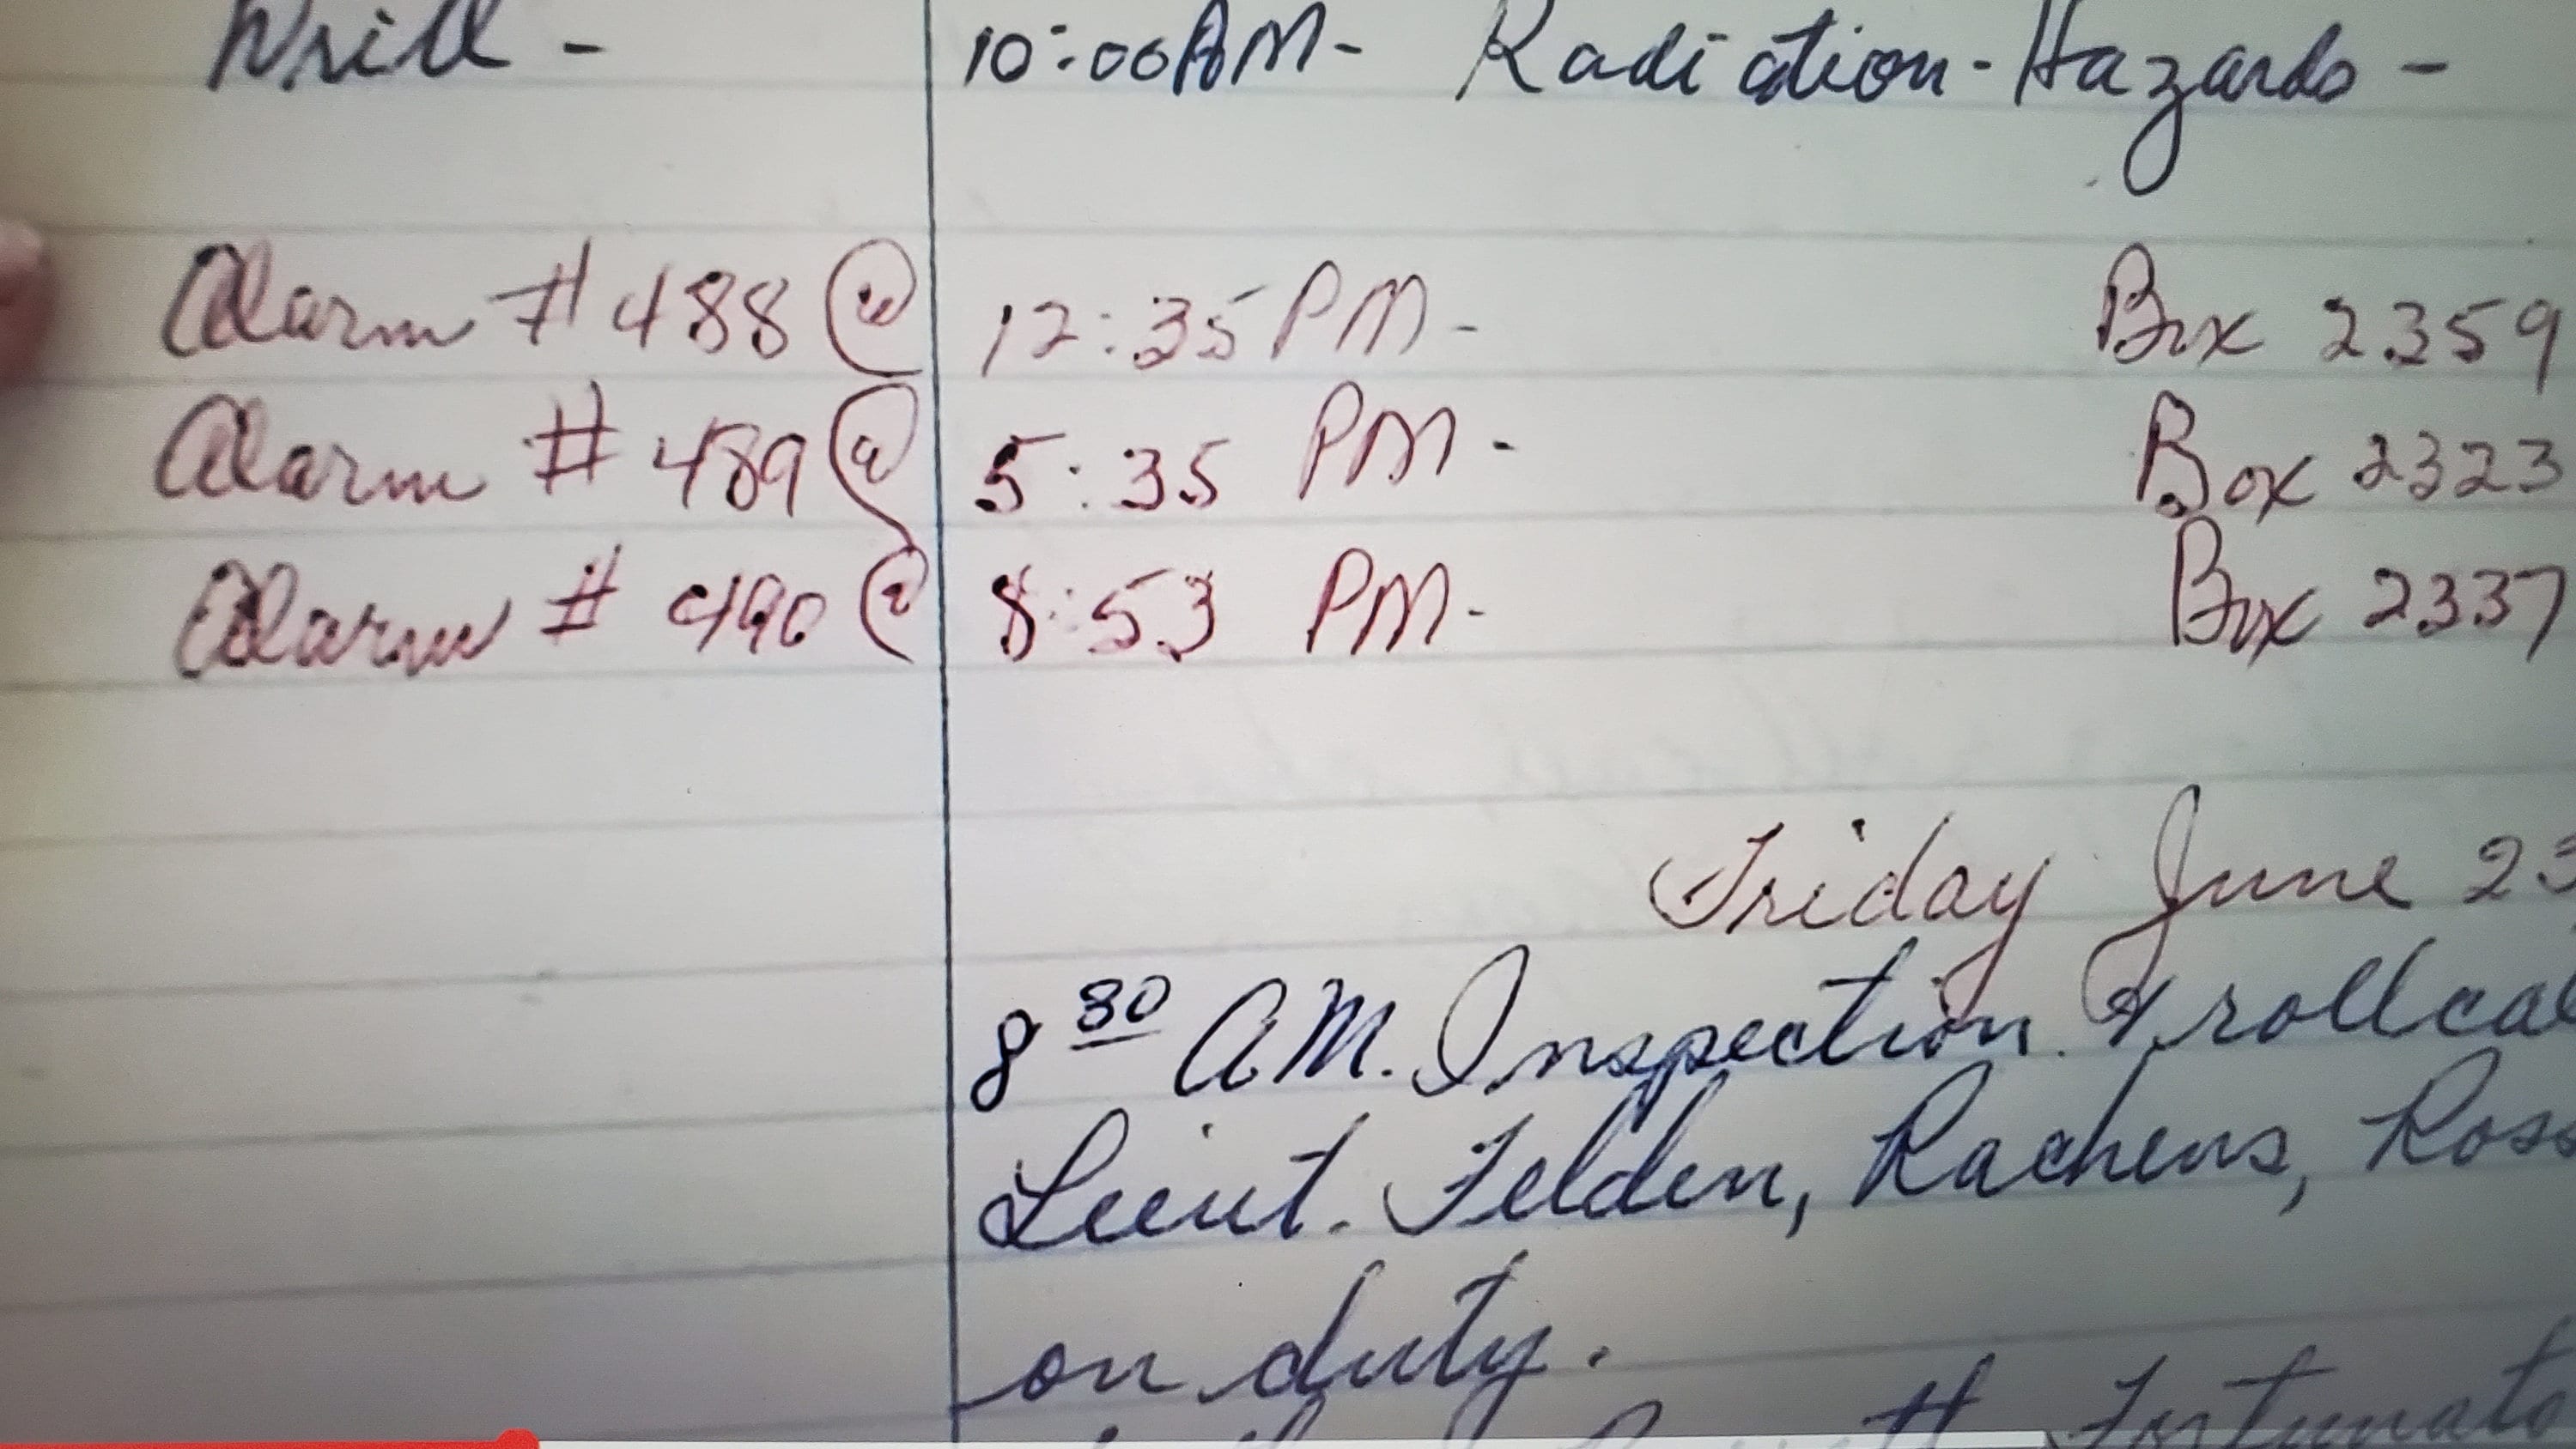 Drill - 10:00AM- Radiation-Hazards-
Alarm # 488 @ 12:35 PM- Box 2359
Alarm # 489 @ 5:35 PM- Box 2323
Alarm # 490 @ 8:53 PM- Box 2337
Friday June 23
8 30 AM. Inspection & rollcal
Lieut. Felden, Rachens, Ross
on duty.
Fortunato